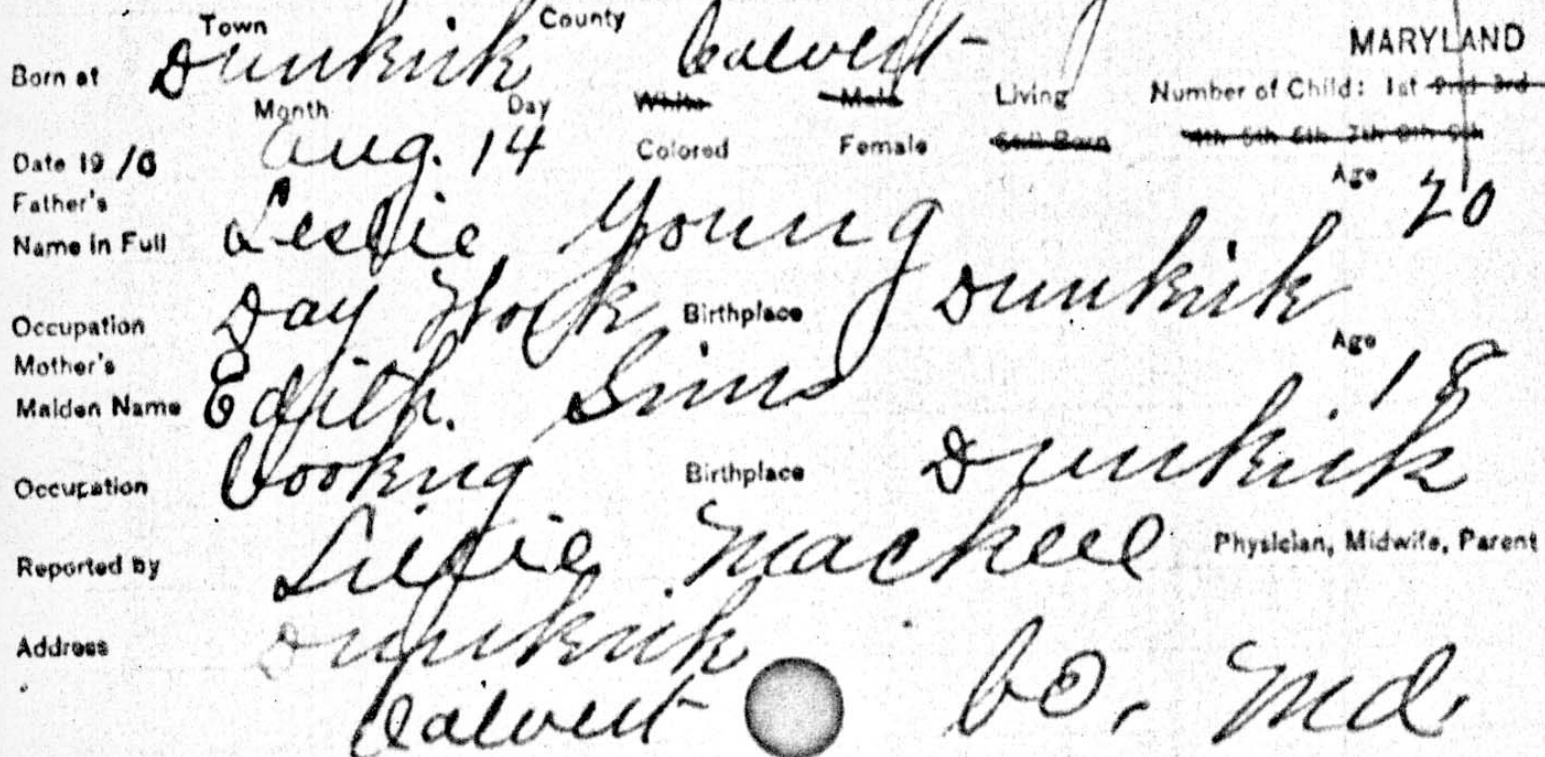 Town County
Born at Dunkirk Calvert MARYLAND
Month Day White Male Living Number of Child: 1st 2nd 3rd
Date 1910 Aug. 14 Colored Female Still Born 4th 5th 6th 7th 8th 9th
Father's Age 20
Name in Full Leslie Young
Occupation Day Work Birthplace Dunkirk
Mother's Age 18
Maiden Name Edith. Sims
Occupation Cooking Birthplace Dunkirk
Reported by Lillie Mackell Physician, Midwife, Parent
Address Dunkirk
Calvert Co. Md.